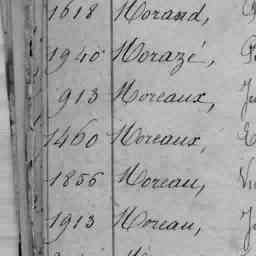 1618 Morand,
1940 Morazé,
913 Moreaux, Ju
1460 Moreaux,
1856 Moreau,
1913 Moreau,